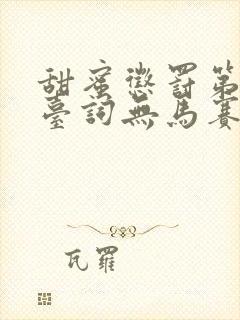 甜蜜懲罰第
臺詞無馬賽
瓦羅